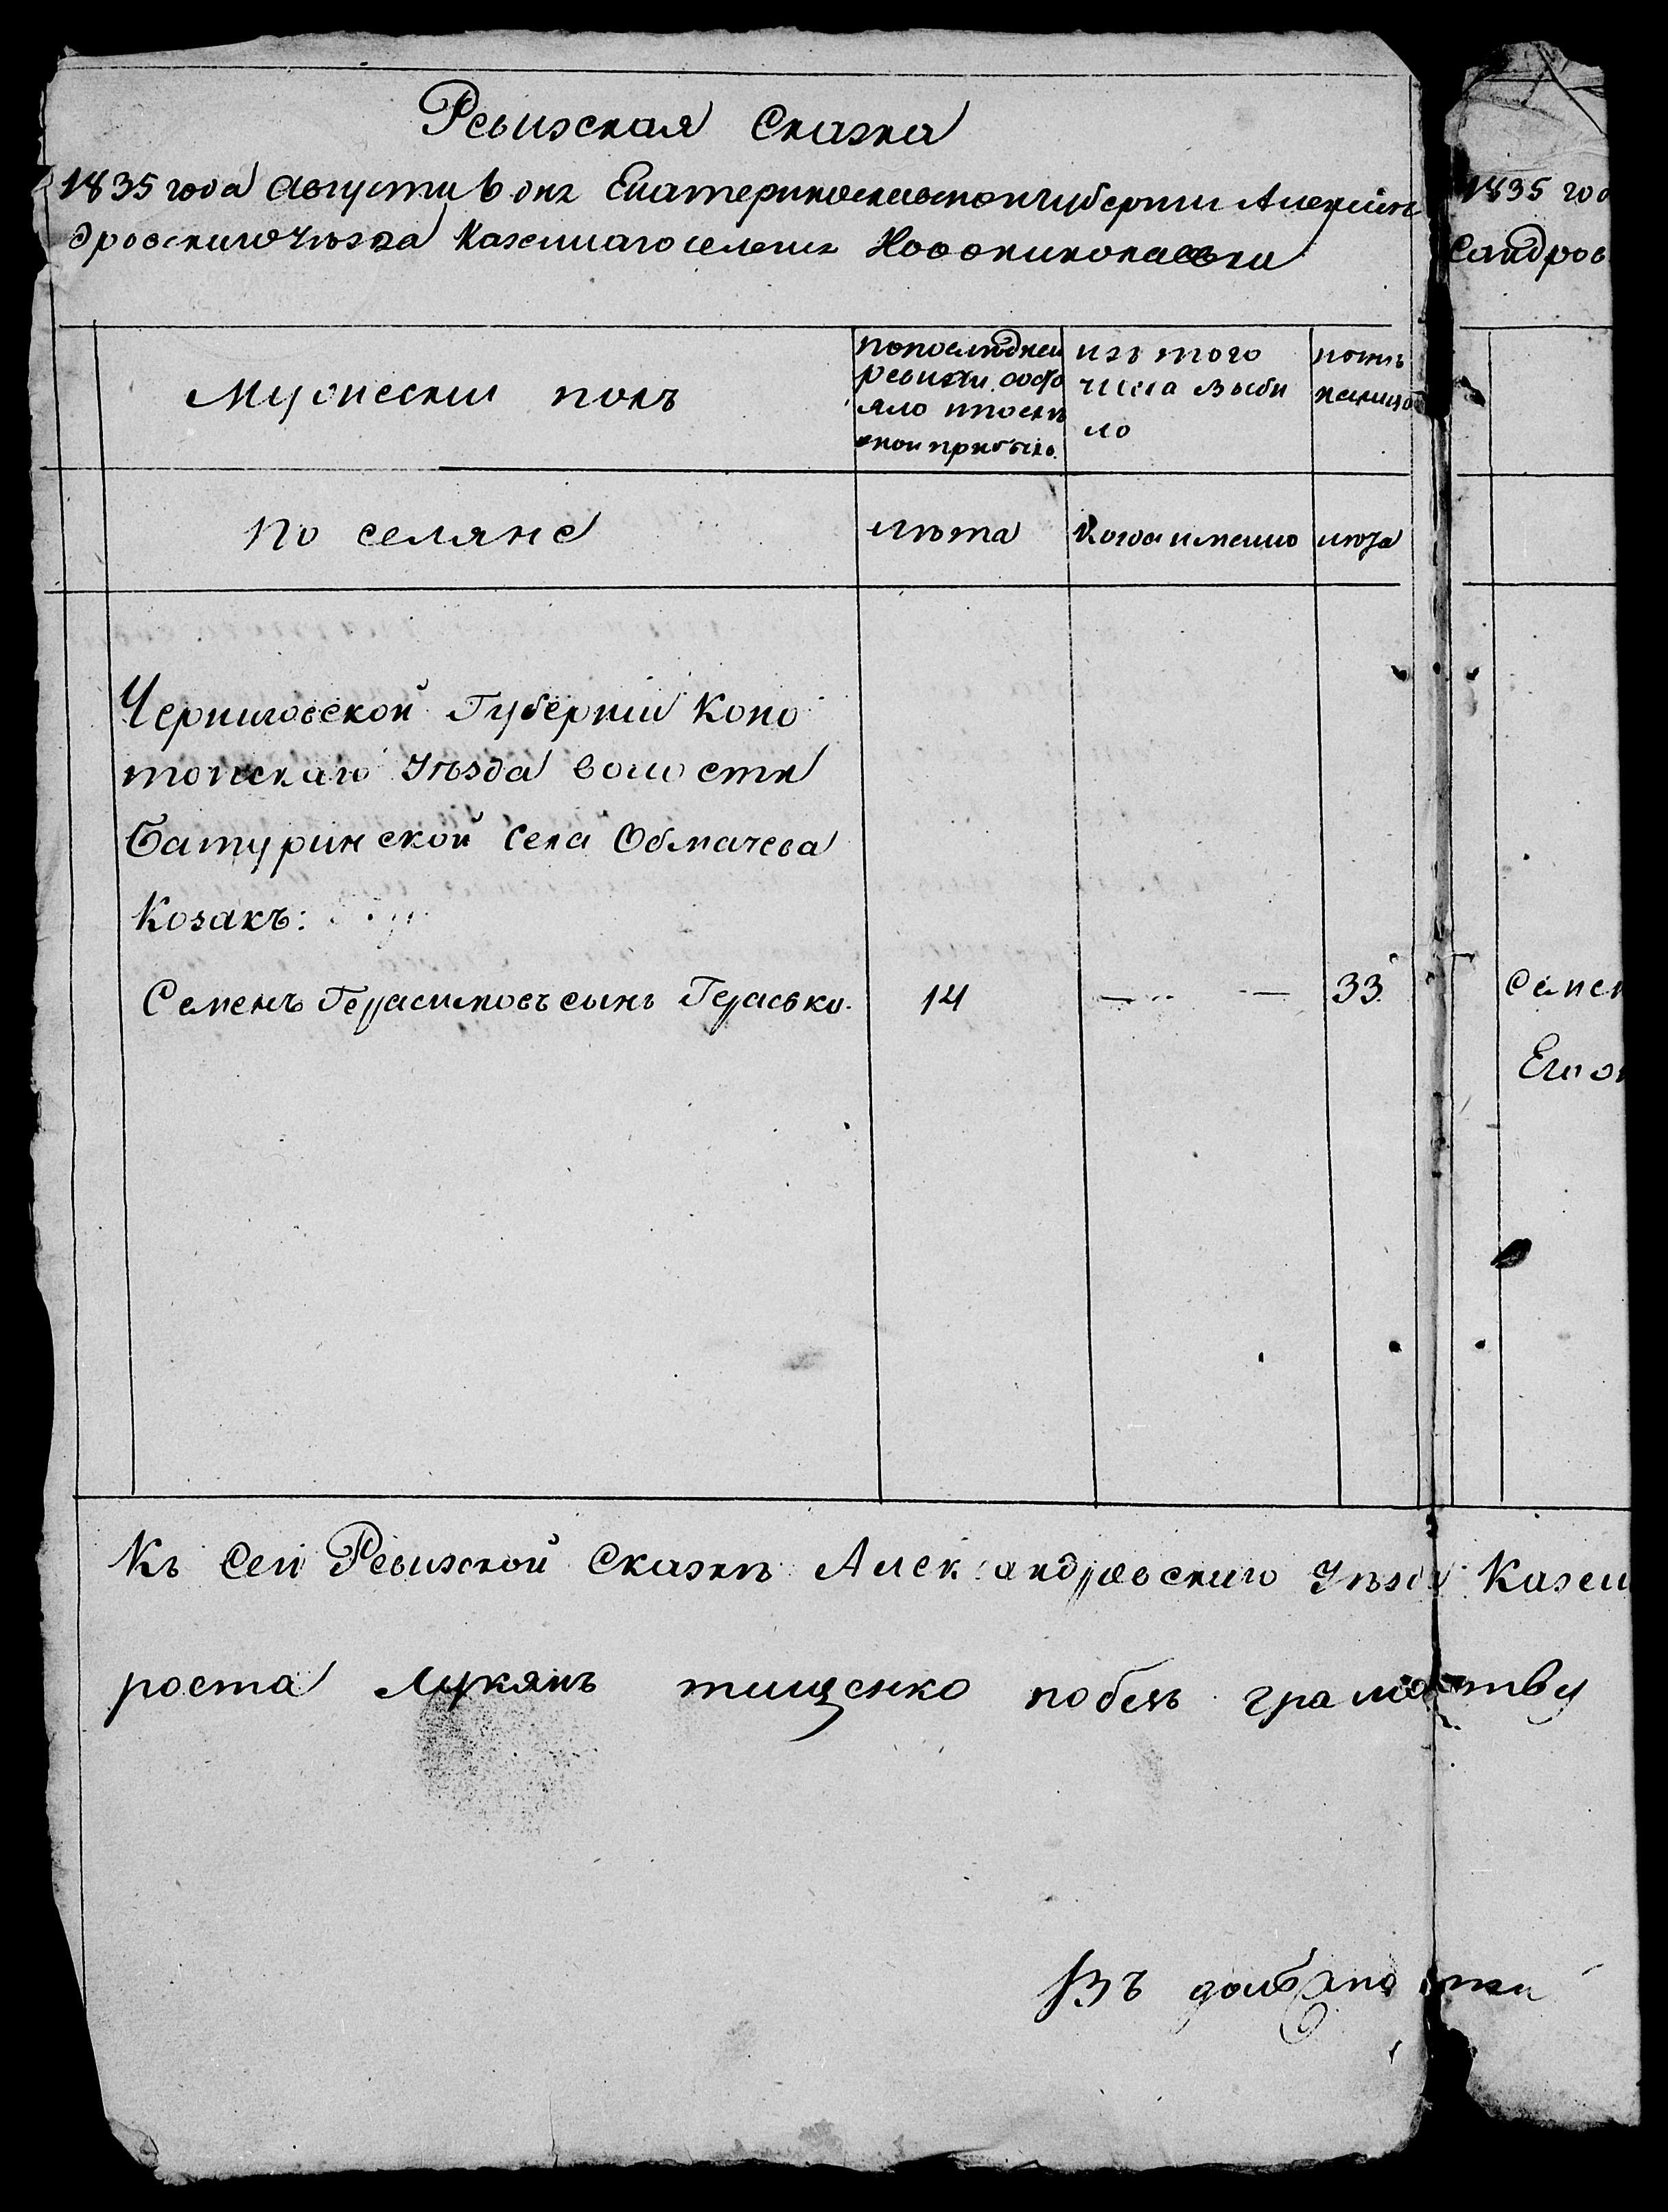 Ревизская Сказка
1835 года Августа 6 дня Екатеринославской губернии Алексан
дровскаго уезда Казеннаго селения Новониколаевки
Мужеский полъ
по последней
ревизии состо
яло и после
оной прибыло
изъ того
числа выбы
ло
ныне
налицо
Поселяне
лета
Когда именно
лета
Черниговской Губернии Коно
топскаго Уезда волости
Батуринской села Обмачева
Козакъ:
Семенъ Герасимовъ сынъ Герасько.
14
33
Къ сей Ревизской Сказке Александровскаго Уезда Казен
роста Лукянъ тищенко по безъ граматству
Въ должно
1835 год
сандров
Семен
Его